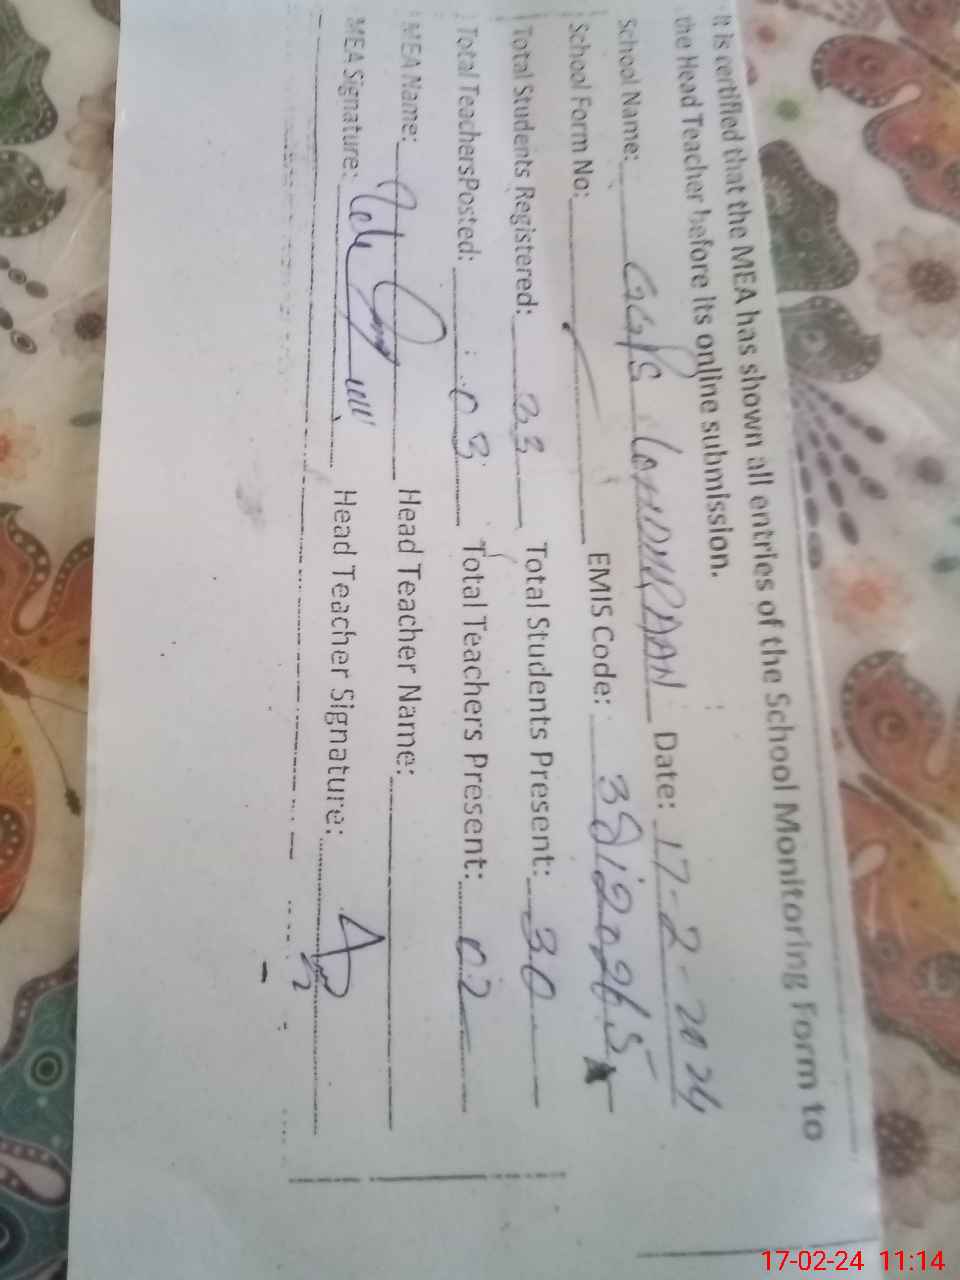 It is certified that the MEA has shown all entries of the School Monitoring Form to
the Head Teacher before its online submission.
School Name: GGPS Date: 17-2-2024
School Form No: EMIS Code: 38120265
Total Students Registered: 33 Total Students Present: 30
Total TeachersPosted: 03 Total Teachers Present: 02
MEA Name: Head Teacher Name:
MEA Signature: Head Teacher Signature:
17-02-24 11:14